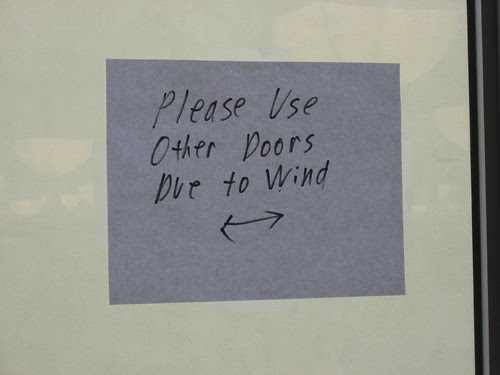 Please Use
Other Doors
Due to Wind